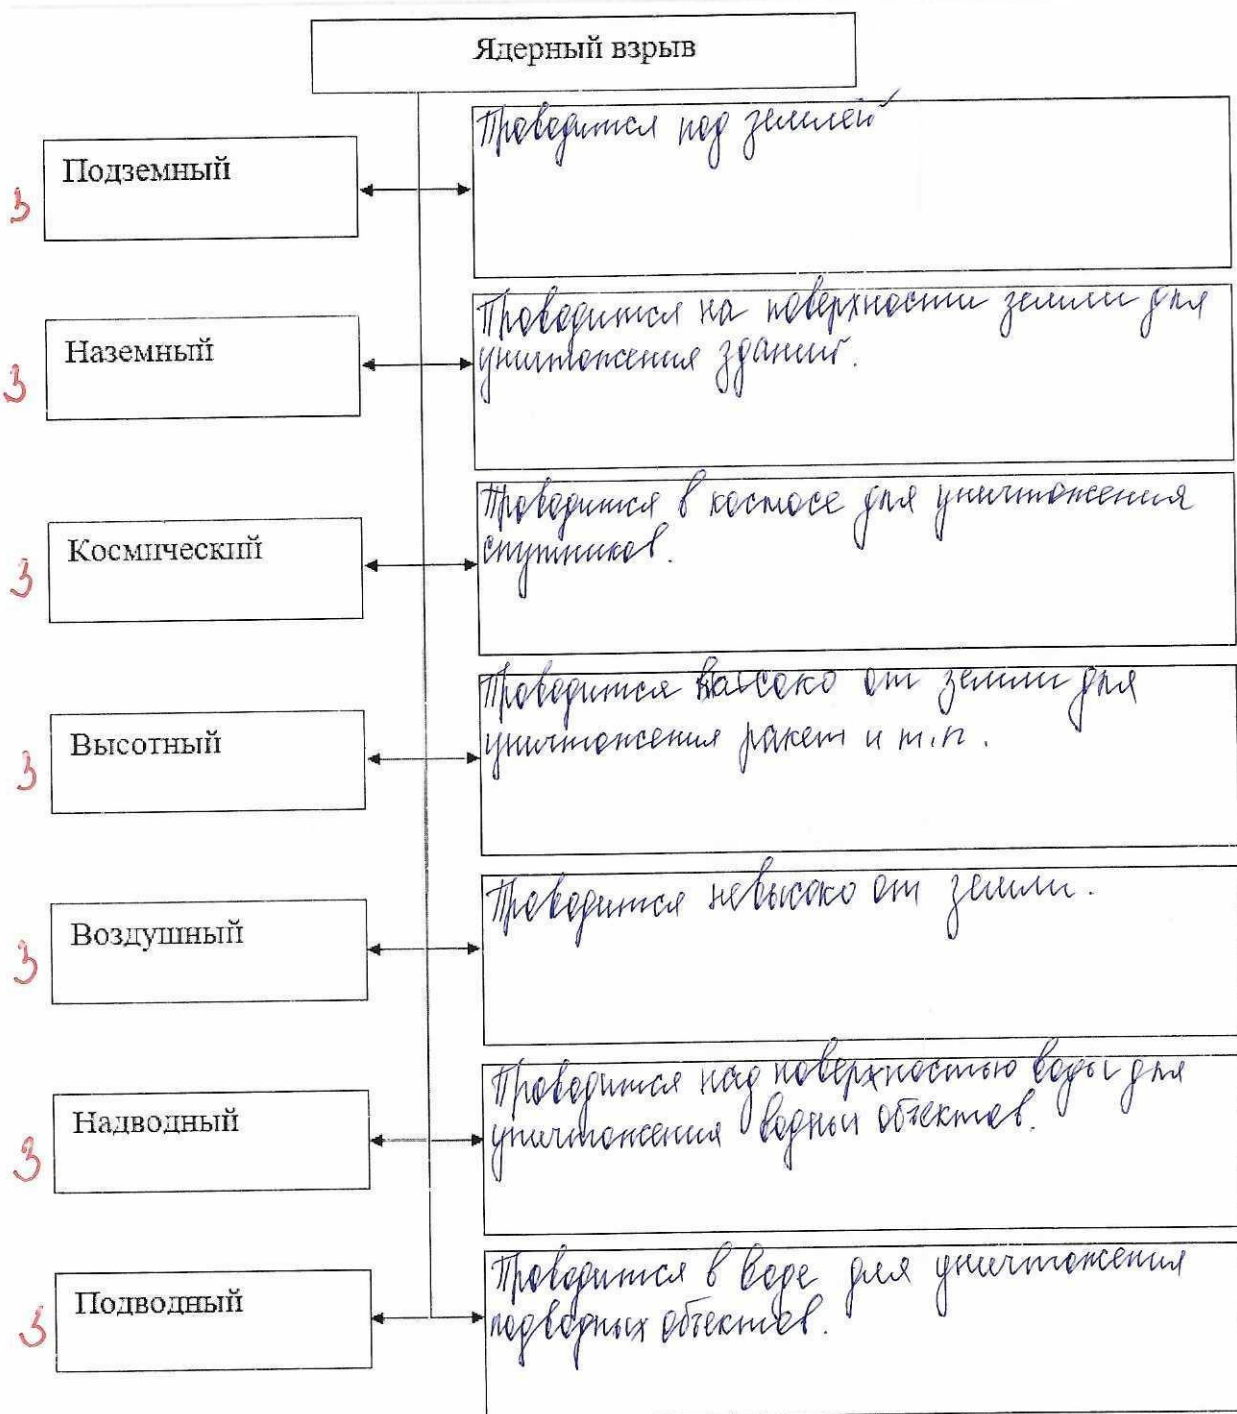 Ядерный взрыв
Подземный
Проводится под землей
3
Наземный
Проводится на поверхности земли для
уничтожения зданий.
3
Космический
Проводится в космосе для уничтожения
спутников.
3
Высотный
Проводится высоко от земли для
уничтожения ракет и т.п.
3
Воздушный
Проводится невысоко от земли.
3
Надводный
Проводится над поверхностью воды для
уничтожения водных объектов.
3
Подводный
Проводится в воде для уничтожения
подводных объектов.
3